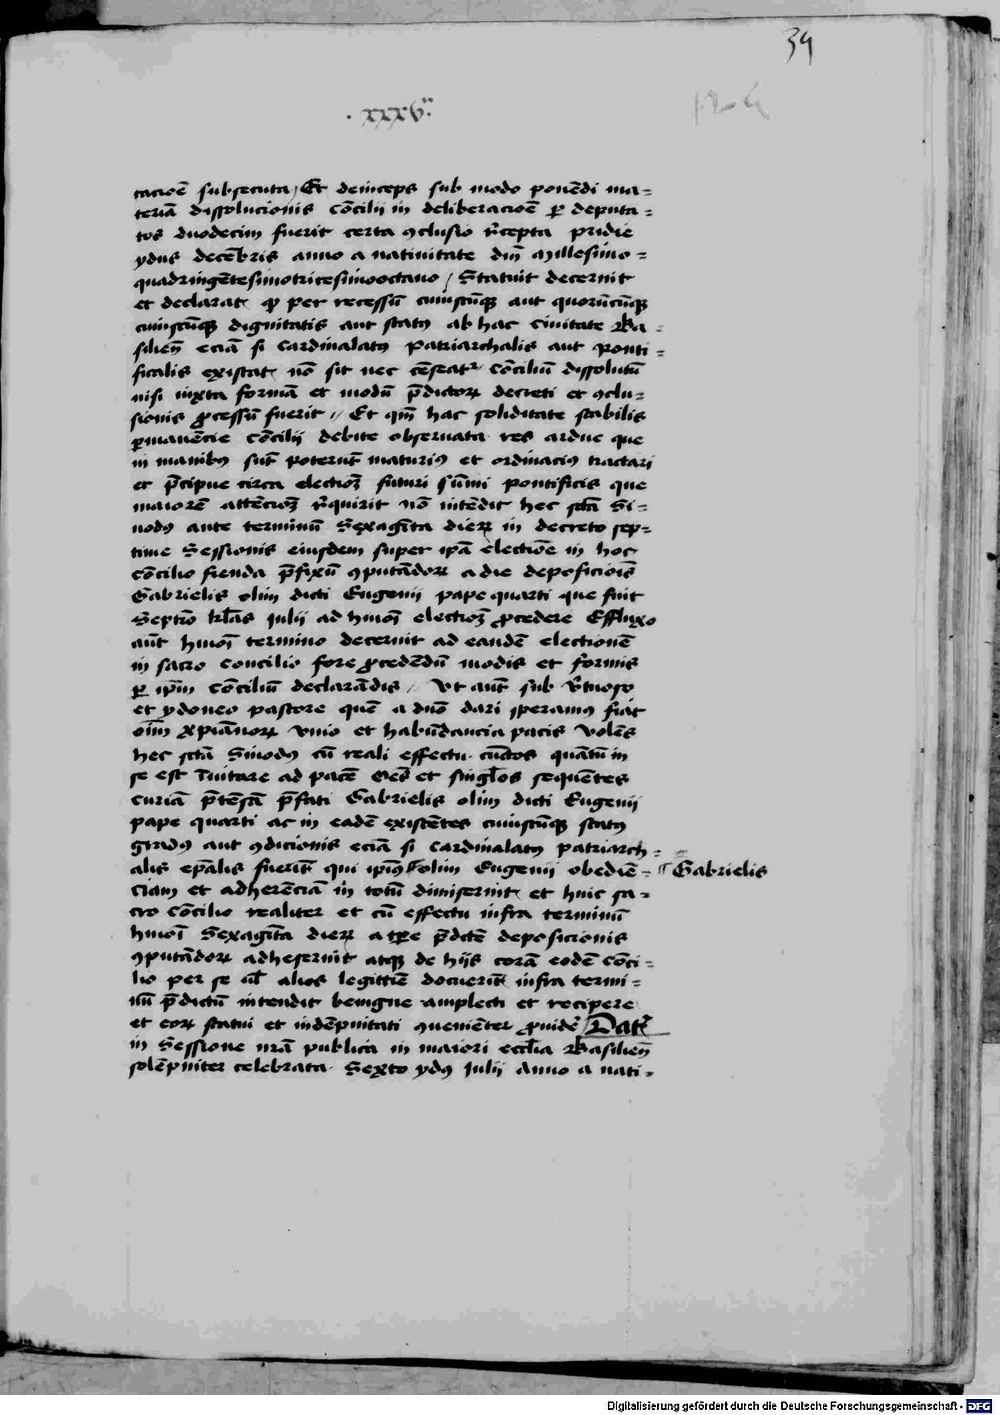 39
· xxxv ·
tacioē subsecuta / Et deinceps sub modo ponēdi ma=
teriā dissolucionis cōcilii in deliberacioē ꝑ deputa=
tos duodecim fuerit certa ꝯclusio r̄cepta pridie
ydus decēbris anno a natiuitate dn̄i Millesimo=
quadringētesimotricesimooctauo / Statuit decernit
et declarat qꝫ per recessū cuiuscūqꝫ aut quorūcūqꝫ
cuiuscūqꝫ dignitatis aut statꝯ ab hac ciuitate Ba=
silien̄ eciā si Cardinalatꝯ Patriarchalis aut Ponti=
ficalis existat nō sit nec cēseatᷣ cōciliū dissolutū
nisi iuxta formā et modū p̄dictoꝝ decreti et ꝯclu=
sionis ꝓcessū fuerit // Et qm̄ hac soliditate stabilis
ꝑmanēcie cōcilii debite obseruata res ardue que
in manibꝯ sūt poterūt maturiꝯ et ordinaciꝯ tractari
et p̄cipue circa electioꝫ futuri sūmi pontificis que
maiorē attēcioꝫ r̄quirit nō intēdit hec sctā Si=
nodꝯ ante terminū Sexagīta dieꝝ in decreto sep=
time Sessionis eiusdem super ip̄a electiōe in hoc
cōcilio fienda p̄fixū ꝯputādoꝝ a die deposiciōis
Gabrielis olim dicti Eugenii pape quarti que fuit
Septīo kl̄as Julii ad hmōi electioꝫ ꝓcedere Effluxo
aūt hmōi termino decernit ad eandē electionē
in sacro concilio fore ꝓcedēdū modis et formis
ꝑ ip̄m cōciliū declarādis // Vt aūt sub v̄tuoso
et ydoneo pastore quē a dn̄o dari speramꝯ fiat
oīm xp̄ianoꝝ vnio et habūdancia pacis volēs
hec sctā Sinodꝯ cū reali effectu cūctos quātū in
se est īuitare ad pacē oēs et singl̄os sequētes
curiā p̄tēsā p̄fati Gabrielis olim dicti Eugenii
pape quarti ac in eadē existētes cuiuscūqꝫ statꝯ
gradꝯ aut ꝯdicionis eciā si Cardinalatꝯ patriarch=
alis ep̄alis fuerīt qui ipiꝯ olim Eugenii obediē=
Gabrielis
ciam et adherēciā in totū dimiserint et huic sa=
cro cōcilio realiter et cū effectu infra terminū
hmōi Sexagīta dieꝝ a tp̄e p̄dcte deposicionis
ꝯputādoꝝ adheserint atqꝫ de hiis corā eodē cōci=
lio per se vl̄ alios legittie docuerīt infra termi=
nū p̄dictū intendit benigne amplecti et recipere
et eoꝝ statui et indēpnitati ꝯueniēter ꝓuidē Dat̄
in Sessione nr̄a publica in maiori eccl̄ia Basilien̄
solēpniter celebrata Sexto ydꝯ Julii Anno a nati=
Digitalisierung gefördert durch die Deutsche Forschungsgemeinschaft - DFG